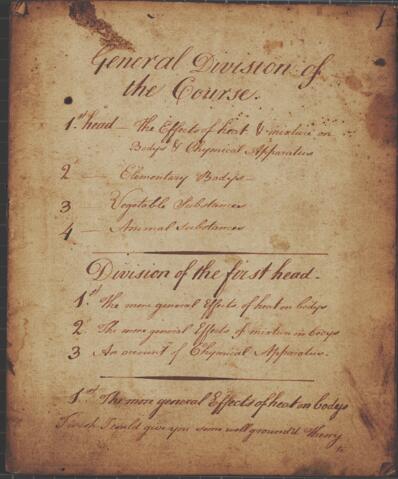 1
General Division of
the Course.
1.st head — The Effects of heat & mixture on
Bodys & Chymical Apparatus
2 — Elementary Bodys —
3 — Vegetable Substances
4 — Animal Substances
Division of the first head.
1.st The more general Effects of heat on bodys
2 The more general Effects of mixture in bodys
3 An account of Chymical Apparatus.
1.st The more general Effects of heat on bodys
I wish I could give you some well ground'd theory